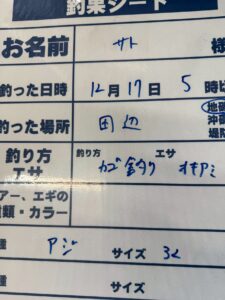 釣果シート
お名前 サト 様
釣った日時 12月17日 5時
釣った場所 田辺 地
釣り方 エサ 釣り方 カゴ釣り エサ オキアミ
アー、エギの
種類・カラー
種 アジ サイズ 32
種 サイズ